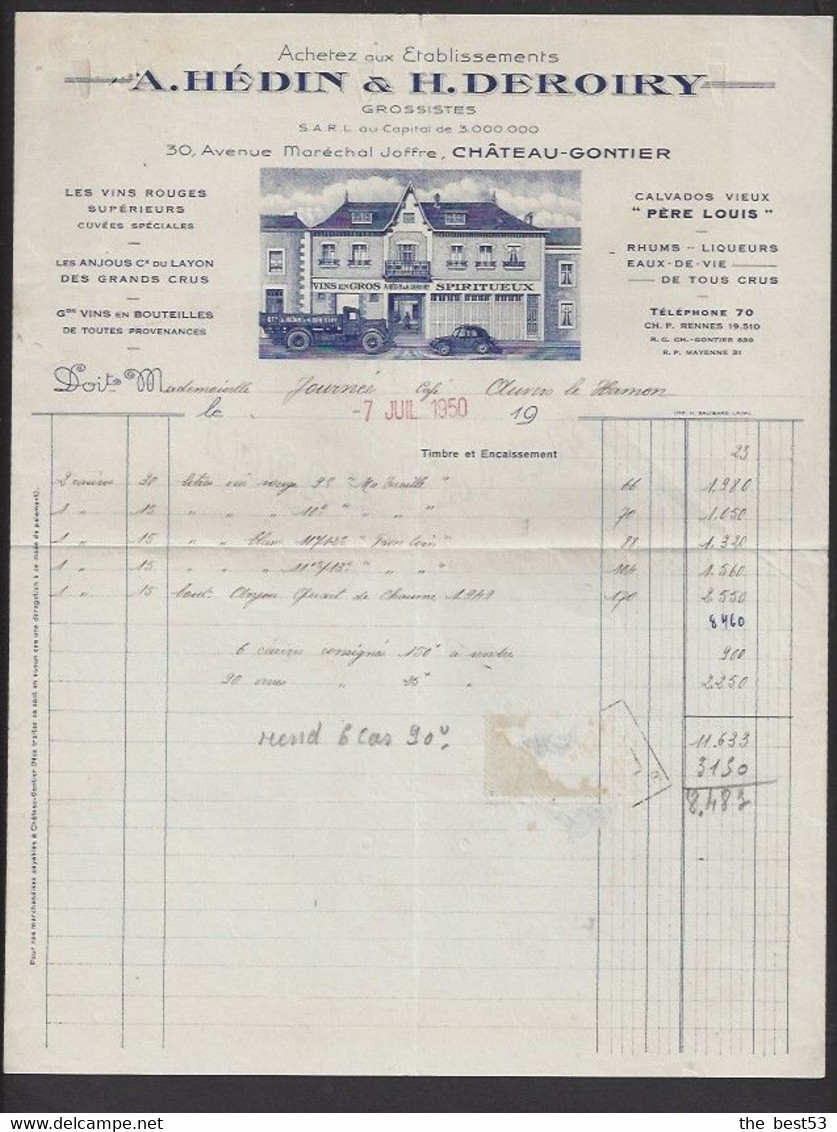 Achetez aux Etablissements
A. HÉDIN & H. DEROIRY
GROSSISTES
S.A.R.L. au Capital de 3.000.000
30, Avenue Maréchal Joffre, CHÂTEAU-GONTIER
LES VINS ROUGES
SUPÉRIEURS
CUVÉES SPÉCIALES
LES ANJOUS Cx DU LAYON
DES GRANDS CRUS
Gds VINS EN BOUTEILLES
DE TOUTES PROVENANCES
VINS EN GROS A. HÉDIN & H. DEROIRY SPIRITUEUX
CALVADOS VIEUX
" PÈRE LOUIS "
RHUMS - LIQUEURS
EAUX-DE-VIE
DE TOUS CRUS
TÉLÉPHONE 70
CH. P. RENNES 19.510
R. C. CH.-GONTIER 830
R. P. MAYENNE 31
Doit Mademoiselle Journée Café Auvers le Hamon
le -7 JUIL 1950 19
IMP. H. LAVAL
Timbre et Encaissement 23
2 casiers 30 litres vin rouge 9° " Ma " 66 1.980
1 " 15 " " " 10° " " " 70 1.050
1 " 15 " " blanc " " 88 1.320
1 " 15 " " " " " 104 1.560
1 " 15 bout. Anjou Quart de Chaume 194 170 2.550
8460
6 casiers consignés 150 à rendre 900
90 verres " 25 " 2.250
rend 6 cas 90 v.
11.633
3150
8.483
Pour nos marchandises payables à Château-Gontier (Nos traites ne sont en aucun cas une dérogation à ce mode de paiement).
the_best53